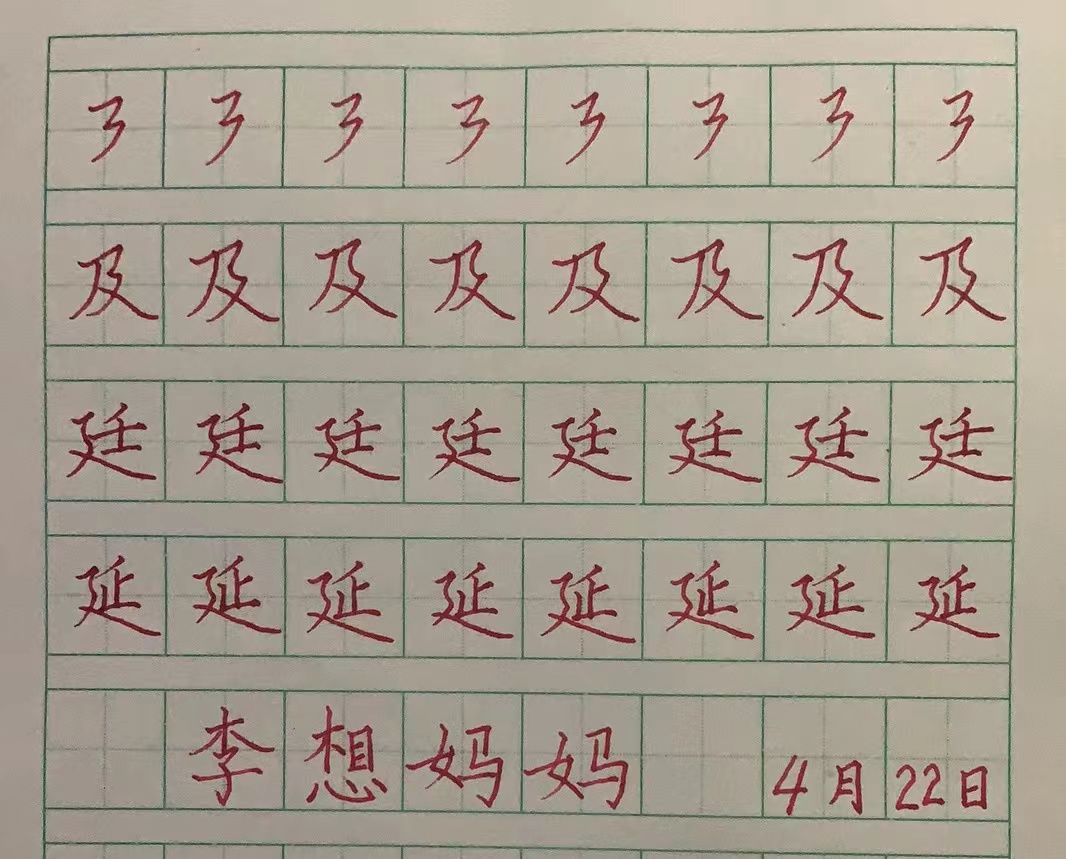 ㇋ ㇋ ㇋ ㇋ ㇋ ㇋ ㇋ ㇋
及 及 及 及 及 及 及 及
廷 廷 廷 廷 廷 廷 廷 廷
延 延 延 延 延 延 延 延
李想妈妈 4月22日